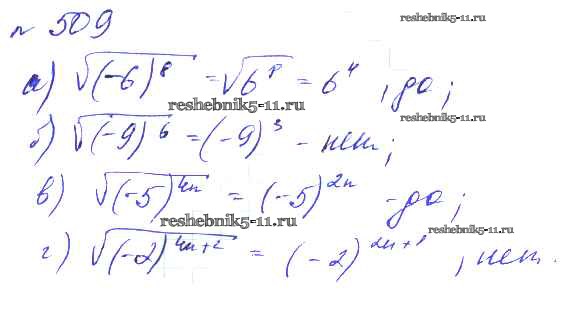 № 509
reshebnik5-11.ru
а) √(-6)^8 = √6^8 = 6^4, да;
reshebnik5-11.ru
reshebnik5-11.ru
б) √(-9)^6 = (-9)^3 - нет;
в) √(-5)^4n = (-5)^2n - да;
reshebnik5-11.ru
reshebnik5-11.ru
г) √(-2)^4n+2 = (-2)^2n+1, нет.